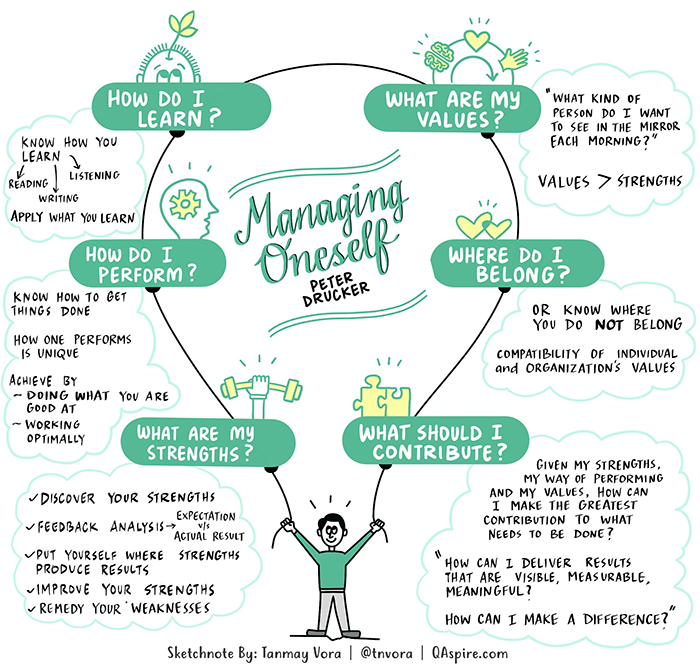 HOW DO I
LEARN?
KNOW HOW YOU
LEARN
READING
WRITING
LISTENING
APPLY WHAT YOU LEARN
HOW DO I
PERFORM?
KNOW HOW TO GET
THINGS DONE
HOW ONE PERFORMS
IS UNIQUE
ACHIEVE BY
~ DOING WHAT YOU ARE
GOOD AT
~ WORKING
OPTIMALLY
WHAT ARE MY
STRENGTHS?
✓ DISCOVER YOUR STRENGTHS
✓ FEEDBACK ANALYSIS → EXPECTATION
V/S
ACTUAL RESULT
✓ PUT YOURSELF WHERE STRENGTHS
PRODUCE RESULTS
✓ IMPROVE YOUR STRENGTHS
✓ REMEDY YOUR WEAKNESSES
Managing
Oneself
PETER
DRUCKER
WHAT ARE MY
VALUES?
"WHAT KIND OF
PERSON DO I WANT
TO SEE IN THE MIRROR
EACH MORNING?"
VALUES > STRENGTHS
WHERE DO I
BELONG?
OR KNOW WHERE
YOU DO NOT BELONG
COMPATIBILITY OF INDIVIDUAL
and ORGANIZATION'S VALUES
WHAT SHOULD I
CONTRIBUTE?
GIVEN MY STRENGTHS,
MY WAY OF PERFORMING
AND MY VALUES, HOW CAN
I MAKE THE GREATEST
CONTRIBUTION TO WHAT
NEEDS TO BE DONE?
"HOW CAN I DELIVER RESULTS
THAT ARE VISIBLE, MEASURABLE,
MEANINGFUL?
HOW CAN I MAKE A DIFFERENCE?"
Sketchnote By: Tanmay Vora | @tnvora | QAspire.com